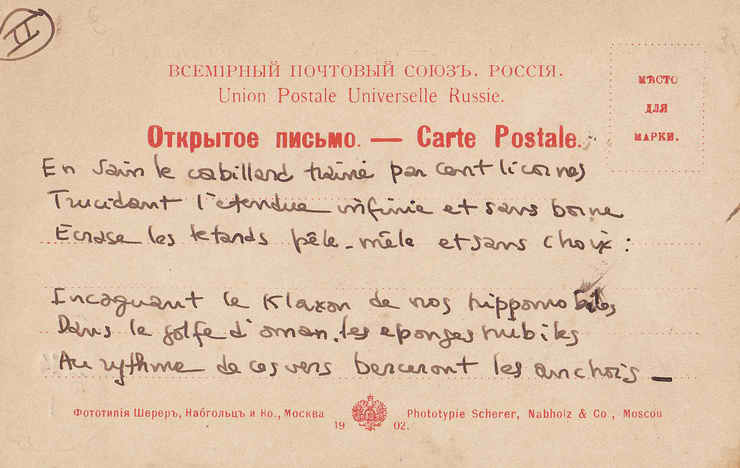 II
ВСЕМІРНЫЙ ПОЧТОВЫЙ СОЮЗЪ. РОССІЯ.
Union Postale Universelle Russie.
МѢСТО
ДЛЯ
МАРКИ.
Открытое письмо. — Carte Postale.
En vain le cabillard traîné par cent licornes
Trucidant l'étendue infinie et sans borne
Ecrase les tetards pêle-mêle et sans choix :
Encaguant le Klaxon de nos hippomobiles
Dans le golfe d'oman, les eponges nubiles
Au rythme de ces vers berceront les anchois —
Фототипія Шереръ, Набгольцъ и Ко., Москва
19 02.
Phototypie Scherer, Nabholz & Co , Moscou